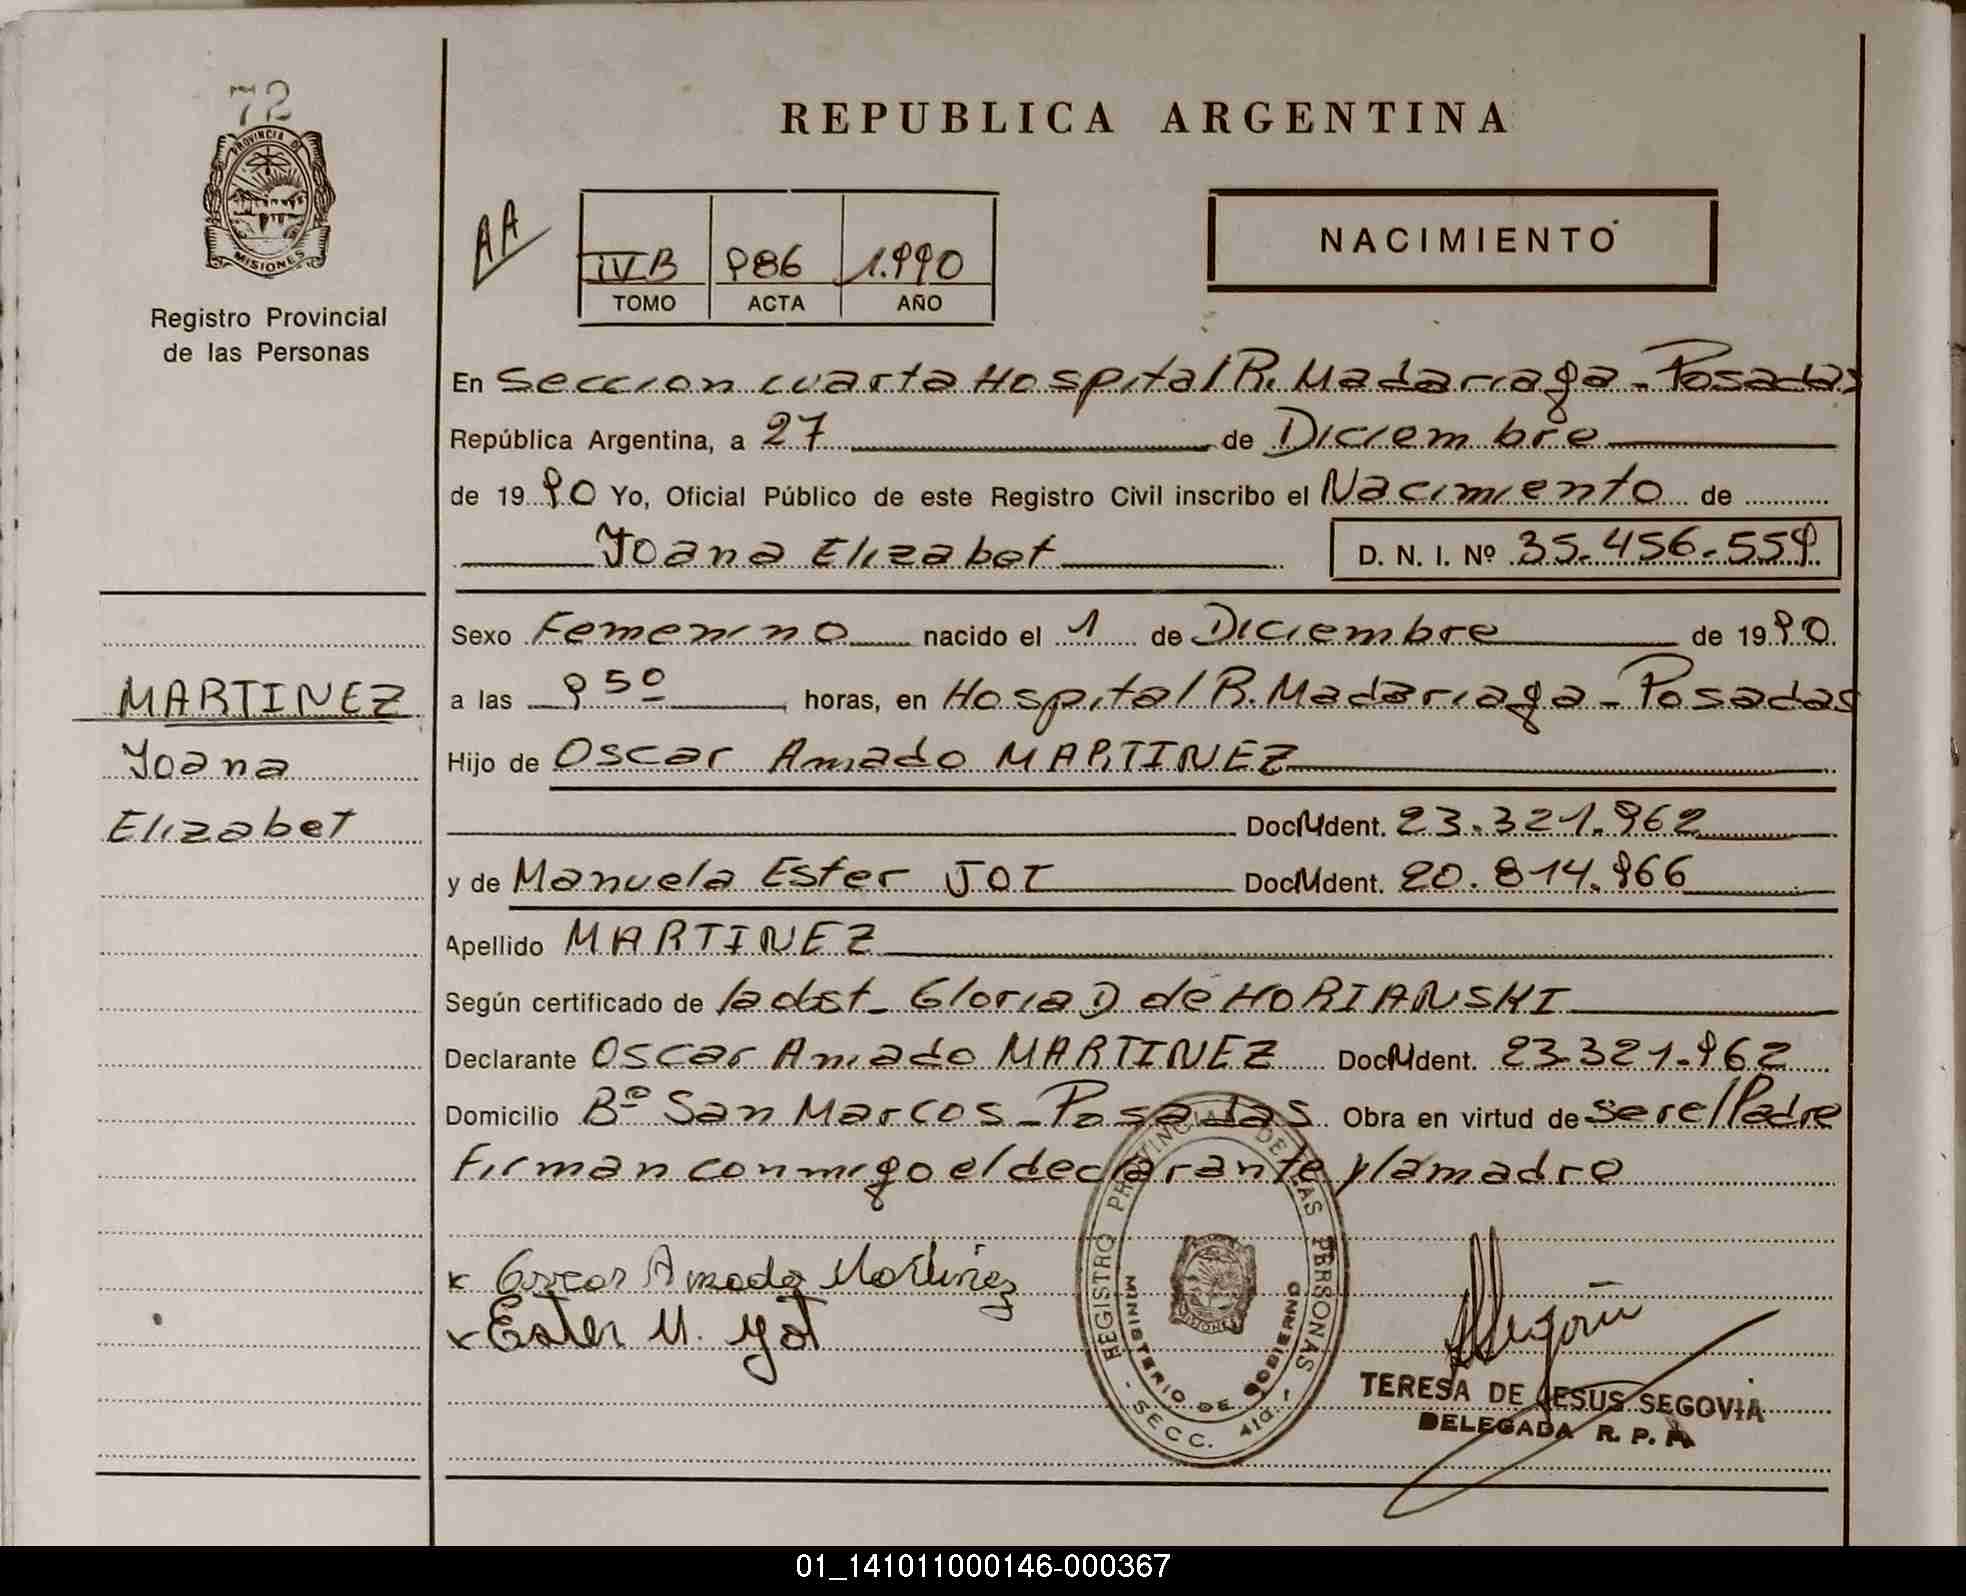 72
REPUBLICA ARGENTINA
PROVINCIA DE
MISIONES
Registro Provincial
de las Personas
AA
IV B 986 1.990
TOMO ACTA AÑO
NACIMIENTO
En Seccion cuarta Hospital R. Madariaga - Posadas
República Argentina, a 27 de Diciembre
de 1990 Yo, Oficial Público de este Registro Civil inscribo el Nacimiento de
Yoana Elizabet D. N. I. Nº 35.456.559
Sexo Femenino nacido el 1 de Diciembre de 1990.
a las 9 50 horas, en Hospital R. Madariaga - Posadas
Hijo de Oscar Amado MARTINEZ
Doc. Ident. 23.321.962
y de Manuela Ester JOT Doc. Ident. 20.814.966
Apellido MARTINEZ
Según certificado de la obst. Gloria D de HORIANSKI
Declarante Oscar Amado MARTINEZ Doc. Ident. 23.321.962
Domicilio Bº San Marcos - Posadas Obra en virtud de ser el Padre
Firman conmigo el declarante y la madre
MARTINEZ
Yoana
Elizabet
Oscar Amado Martinez
Ester M. Yot
REGISTRO PROVINCIAL DE LAS PERSONAS
MINISTERIO DE GOBIERNO
MISIONES
- SECC. 4ta. -
TERESA DE JESUS SEGOVIA
DELEGADA R. P.
01_141011000146-000367